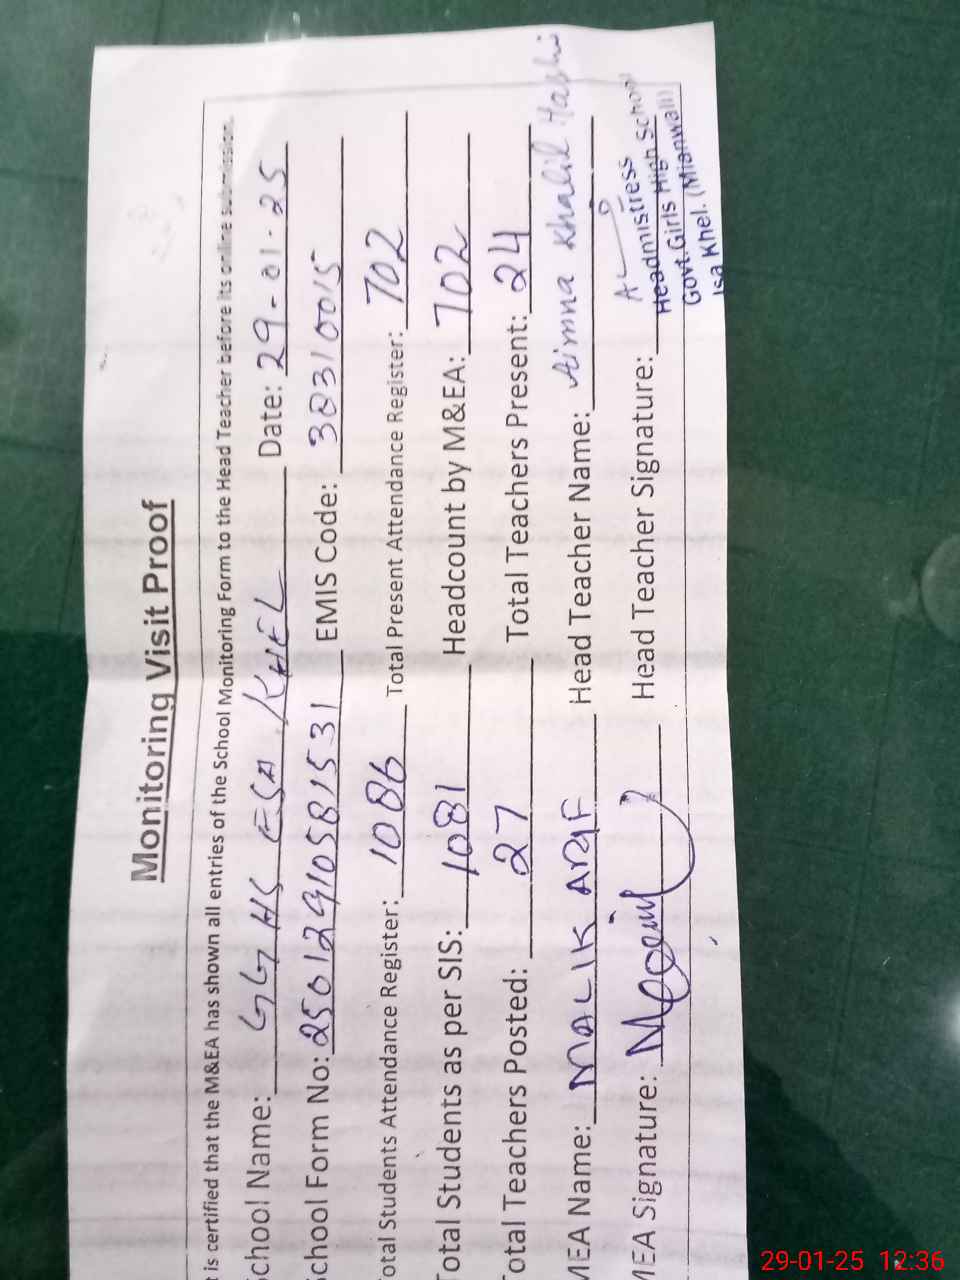 Monitoring Visit Proof
t is certified that the M&EA has shown all entries of the School Monitoring Form to the Head Teacher before its online submission.
School Name: GGHS ESA KHEL Date: 29-01-25
School Form No: 2501291058 1531 EMIS Code: 38310015
otal Students Attendance Register: 1086 Total Present Attendance Register: 702
Total Students as per SIS: 1081 Headcount by M&EA: 702
Total Teachers Posted: 27 Total Teachers Present: 24
MEA Name: MALIK ARIF Head Teacher Name: Aimna Khalil Hashi
MEA Signature: Head Teacher Signature:
Headmistress
Govt. Girls High School
Isa Khel. (Mianwali)
29-01-25 12:36